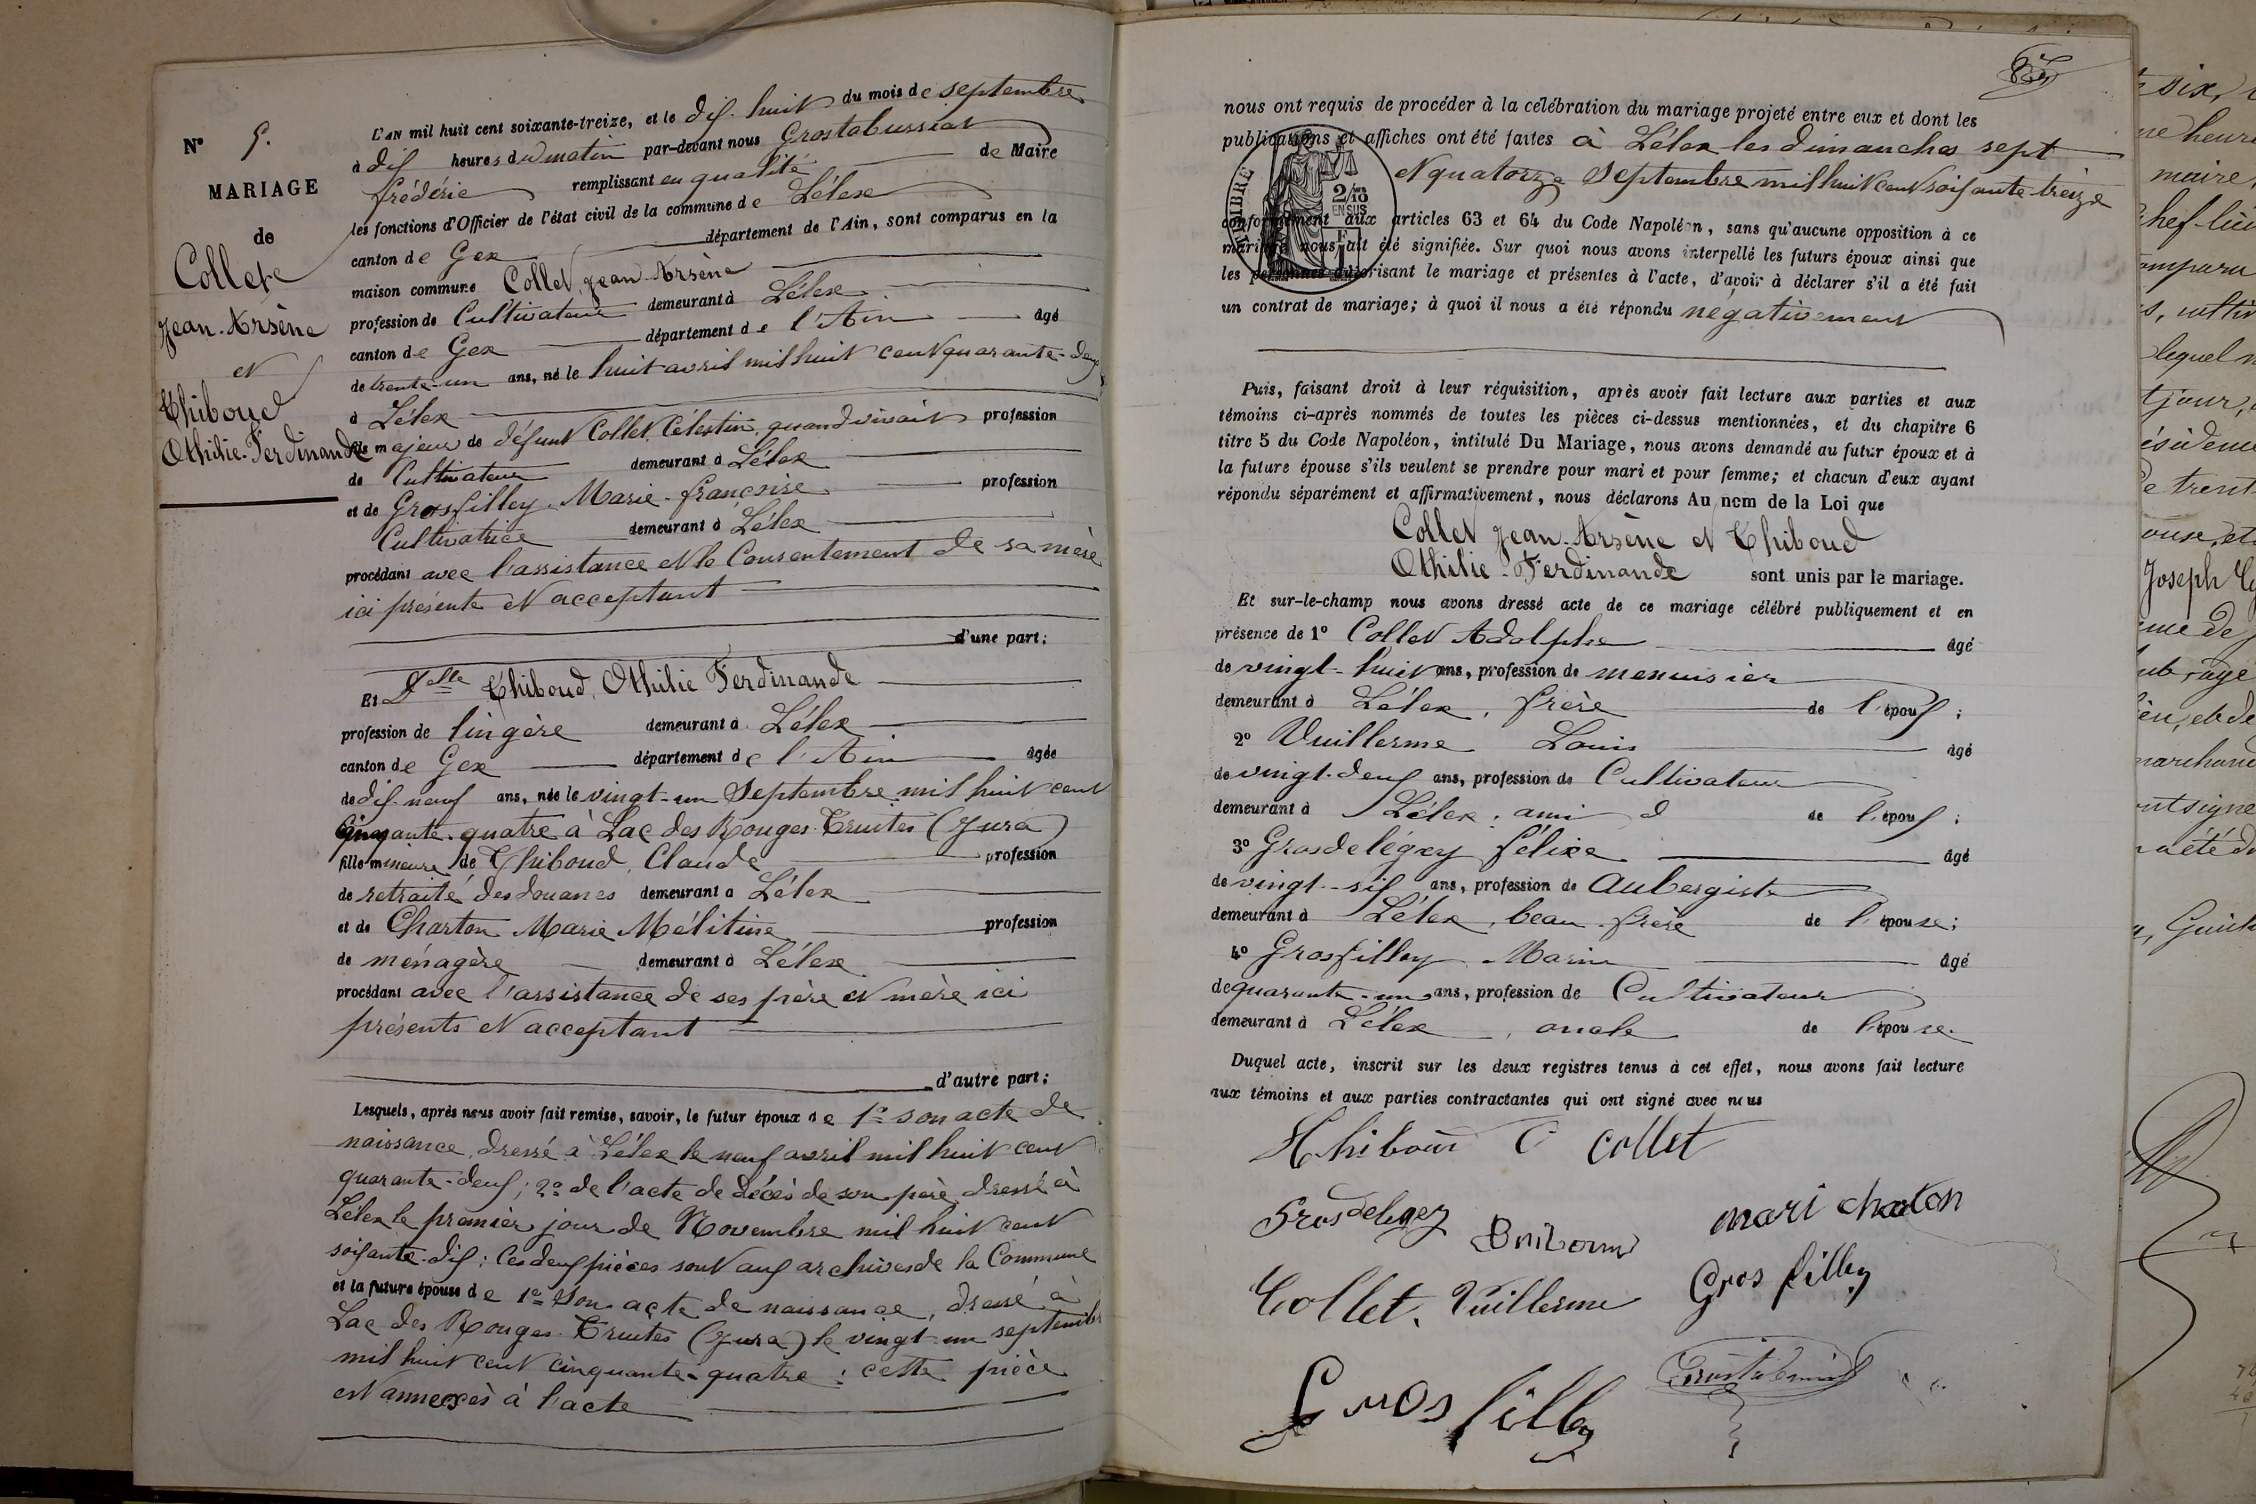 N° 9.
MARIAGE
de
Collet
Jean-Arsène
et
Thiboud
Othilie-Ferdinande
L'AN mil huit cent soixante-treize, et le dix-huit du mois de septembre
à dix heures du matin par-devant nous Grostabussiat
Frédéric remplissant en qualité de Maire
les fonctions d'Officier de l'état civil de la commune de Lélex
canton de Gex département de l'Ain, sont comparus en la
maison commune Collet, Jean-Arsène
profession de Cultivateur demeurant à Lélex
canton de Gex département de l'Ain âgé
de trente-un ans, né le huit avril mil huit cent quarante-deux
à Lélex
fils majeur de défunt Collet, Célestin, quand vivait profession
de Cultivateur demeurant à Lélex
et de Grosfilley, Marie-françoise profession
Cultivatrice demeurant à Lélex
procédant avec l'assistance et le Consentement de sa mère
ici présente et acceptant
d'une part;
Et Delle Thiboud, Othilie Ferdinande
profession de lingère demeurant à Lélex
canton de Gex département de l'Ain âgée
de dix-neuf ans, née le vingt-un Septembre mil huit cent
cinquante-quatre à Lac des Rouges-Truites (Jura)
fille mineure de Thiboud, Claude profession
de retraité des douanes demeurant à Lélex
et de Charton Marie Mélitine profession
de ménagère demeurant à Lélex
procédant avec l'assistance de ses père et mère ici
présents et acceptant
d'autre part;
Lesquels, après nous avoir fait remise, savoir, le futur époux de 1° son acte de
naissance, dressé à Lélex le neuf avril mil huit cent
quarante-deux; 2° de l'acte de décès de son père, dressé à
Lélex le premier jour de Novembre mil huit cent
soixante-dix; Ces deux pièces sont aux archives de la Commune
et la future épouse de 1° Son acte de naissance, dressé à
Lac des Rouges-Truites (Jura) le vingt-un septembre
mil huit cent cinquante-quatre; cette pièce
est annexés à l'acte
nous ont requis de procéder à la célébration du mariage projeté entre eux et dont les
publications et affiches ont été faites à Lélex les dimanches sept
et quatorze Septembre mil huit cent soixante-treize
TIMBRE
2/10
EN SUS
conformément aux articles 63 et 64 du Code Napoléon, sans qu'aucune opposition à ce
mariage nous ait été signifiée. Sur quoi nous avons interpellé les futurs époux ainsi que
les personnes autorisant le mariage et présentes à l'acte, d'avoir à déclarer s'il a été fait
un contrat de mariage; à quoi il nous a été répondu négativement
Puis, faisant droit à leur réquisition, après avoir fait lecture aux parties et aux
témoins ci-après nommés de toutes les pièces ci-dessus mentionnées, et du chapitre 6
titre 5 du Code Napoléon, intitulé Du Mariage, nous avons demandé au futur époux et à
la future épouse s'ils veulent se prendre pour mari et pour femme; et chacun d'eux ayant
répondu séparément et affirmativement, nous déclarons Au nom de la Loi que
Collet Jean-Arsène et Thiboud
Othilie-Ferdinande sont unis par le mariage.
Et sur-le-champ nous avons dressé acte de ce mariage célébré publiquement et en
présence de 1° Collet Adolphe âgé
de vingt-huit ans, profession de menuisier
demeurant à Lélex, frère de l'époux;
2° Vuillerme Louis âgé
de vingt-deux ans, profession de Cultivateur
demeurant à Lélex; ami d de l'époux;
3° Grosdelégey félixe âgé
de vingt-six ans, profession de aubergiste
demeurant à Lélex, beau-frère de l'épouse;
4° Grosfilley Marin âgé
de quarante-un ans, profession de Cultivateur
demeurant à Lélex, oncle de l'épouse.
Duquel acte, inscrit sur les deux registres tenus à cet effet, nous avons fait lecture
aux témoins et aux parties contractantes qui ont signé avec nous
Thiboud O collet
Grosdelegey mari chaton
Collet. Vuillerme Gros filley
Gros filley